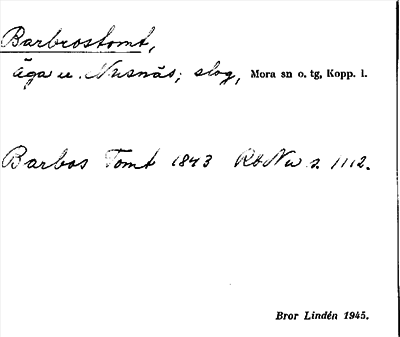 Barbrostomt,
äga u. Nusnäs; slog, Mora sn o. tg, Kopp. l.
Barbos Tomt 1843 RbNu s. 1112.
Bror Lindén 1945.